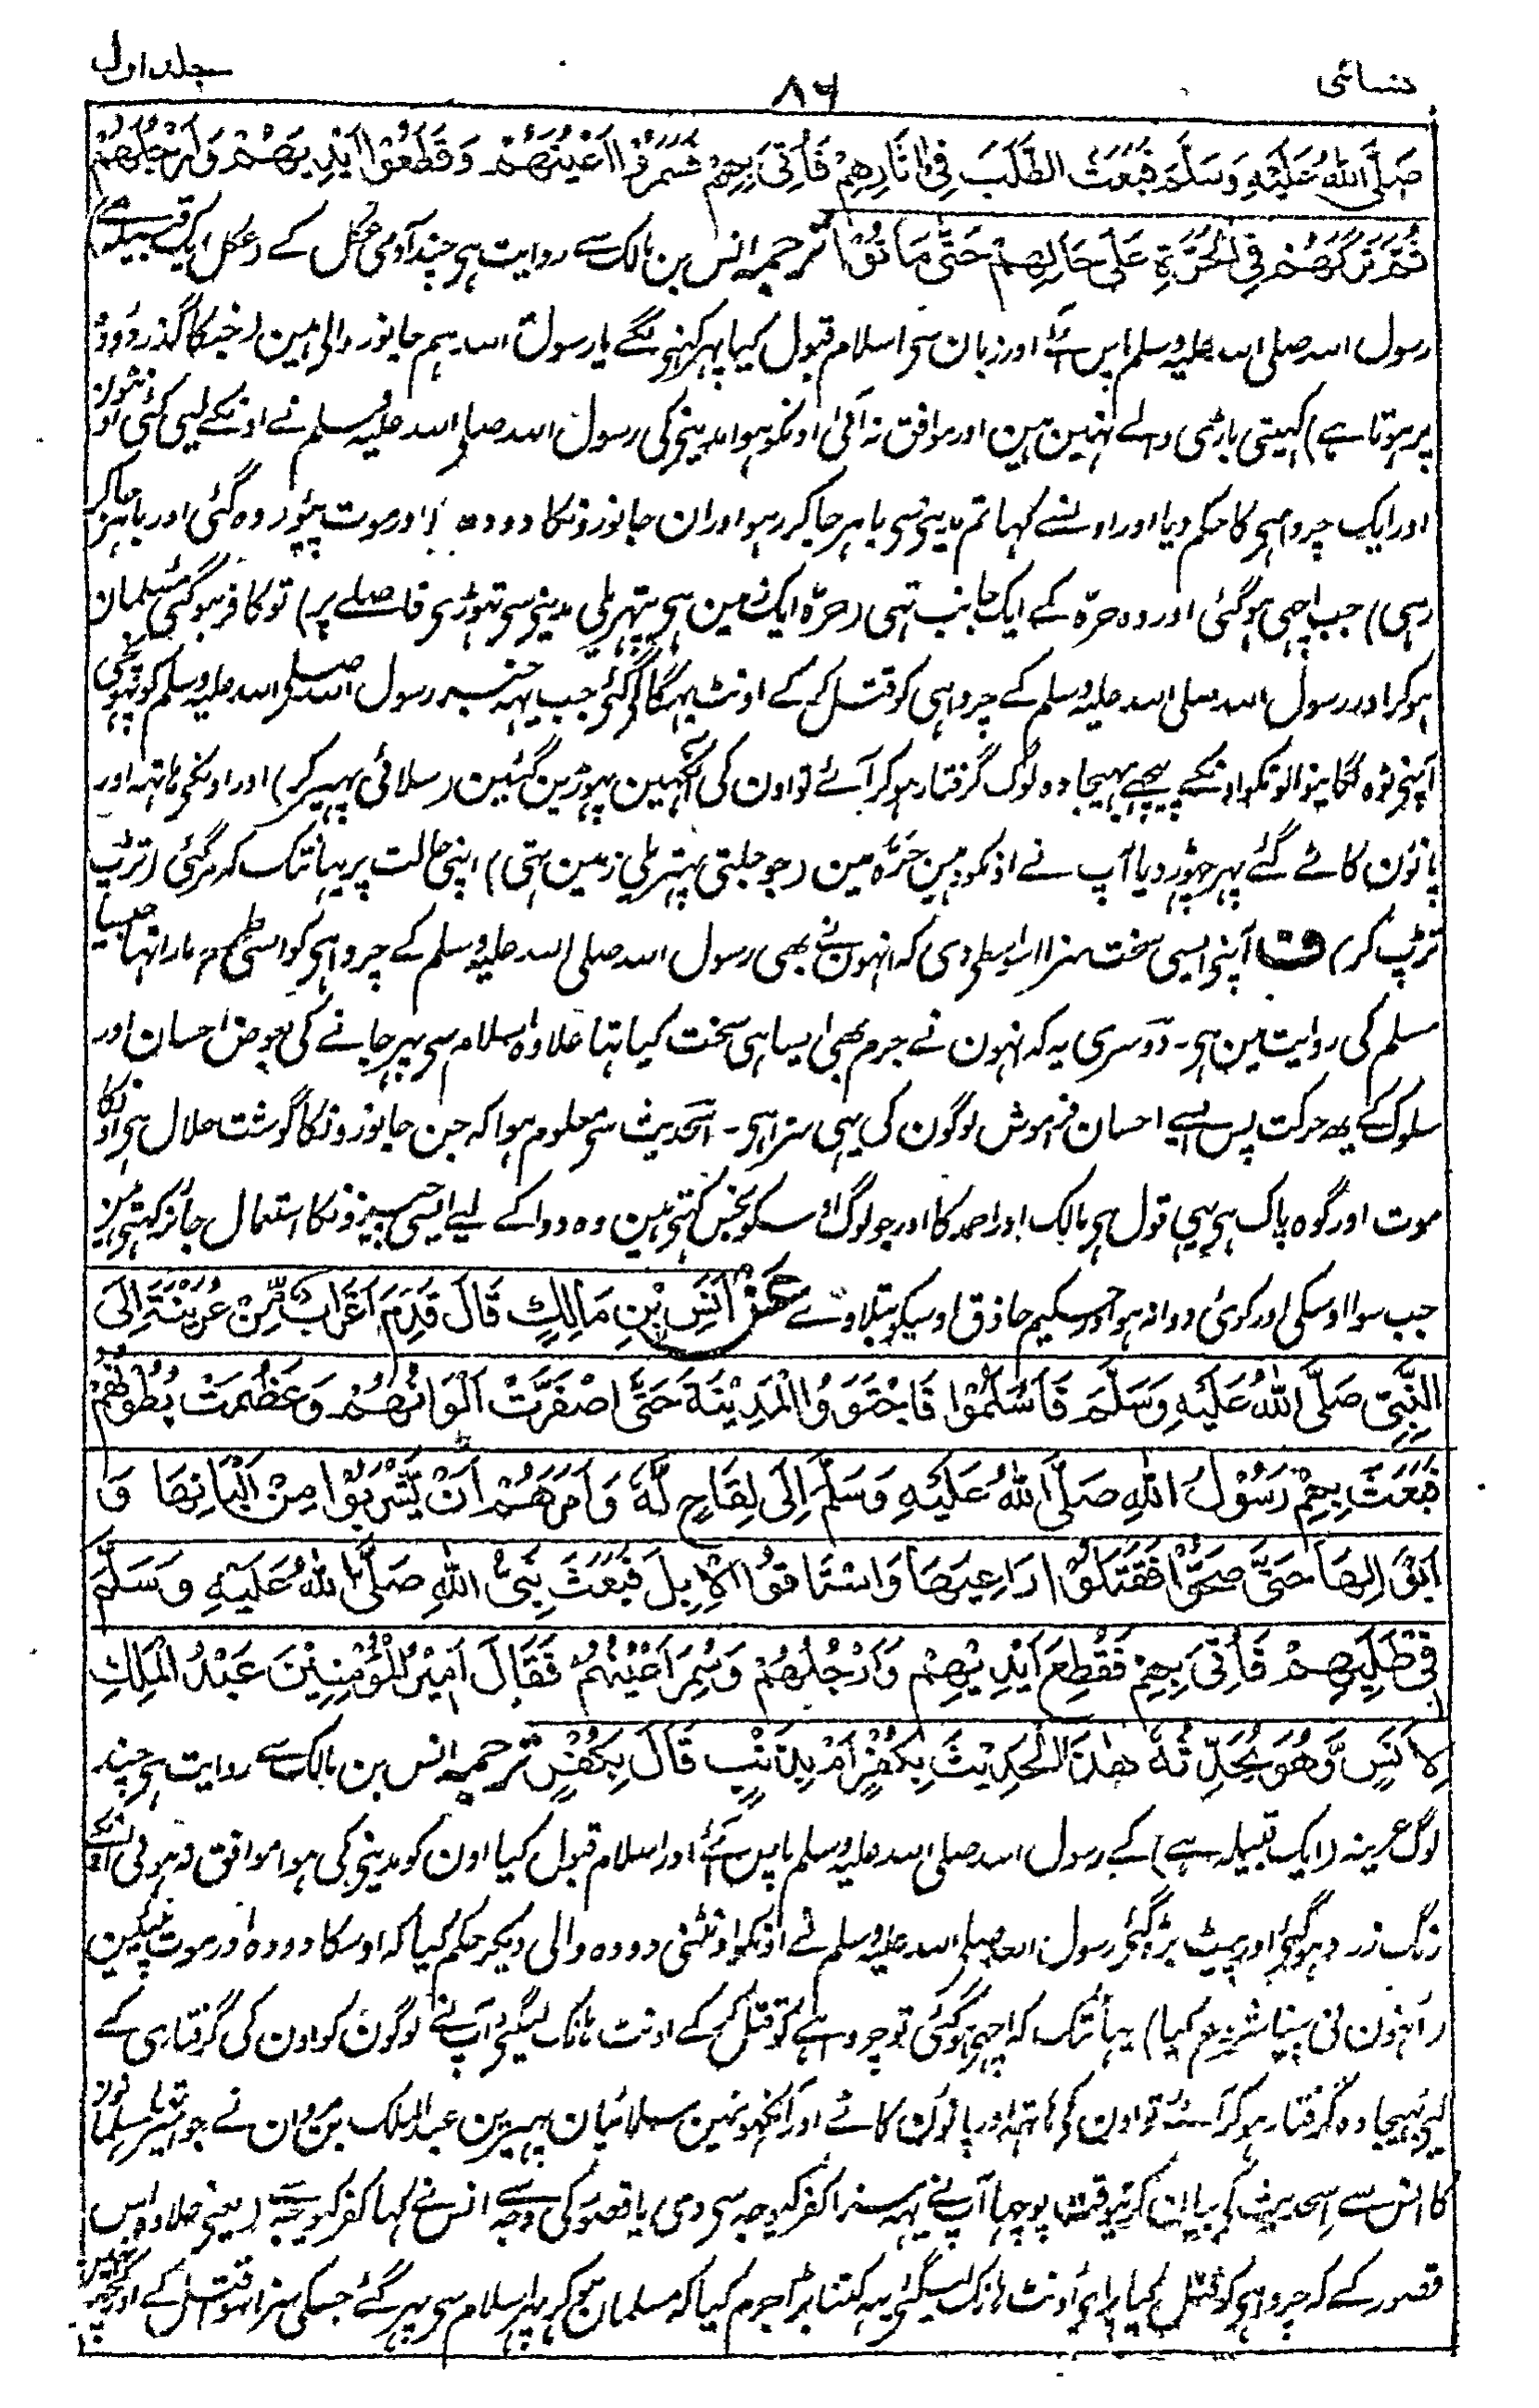 نسائی ۸۶ جلد اول
صَلَّی اللّٰهُ عَلَیْهِ وَسَلَّمَ فَبَعَثَ الطَّلَبَ فِیْ اٰثَارِهِمْ فَاُتِیَ بِهِمْ فَسَمَرُوْا اَعْیُنَهُمْ وَقَطَعُوْا اَیْدِیَهُمْ وَاَرْجُلَهُمْ
ثُمَّ تَرَکَهُمْ فِی الْحَرَّةِ عَلٰی حَالِهِمْ حَتّٰی مَاتُوْا ترجمہ انس بن مالک سے روایت ہی چند آدمی عکل کے (عکل ایک قبیلہ ہے)
رسول اللہ صلی اللہ علیہ وسلم پاس آئے اور زبان سی اسلام قبول کیا پہر کہنے لگے یا رسول اللہ ہم جانور والی ہین (جنکا گذر دودہ
پر ہوتا ہے) کہیتی باڑی والے نہین ہین اور موافق نہ آئی اونکو ہوا مدینی کی رسول اللہ صلی اللہ علیہ وسلم نے اونکے لیی کئی اونٹون
اور ایک چرواہی کا حکم دیا اور اونسے کہا تم مدینی سی باہر جا کر رہو اور ان جانورونکا دودہ اور موت پیو (وہ گئی اور باہر جاکر
رہی) جب اچہی ہوگئی اور وہ حرّہ کے ایک جانب تہی (حرّہ ایک زمین ہی پتہریلی مدینی سی تہوڑی فاصلے پر) تو کافر ہوگئی مسلمان
ہوکر اور رسول اللہ صلی اللہ علیہ وسلم کے چرواہی کو قتل کر کے اونٹ بہگا لیگئی جب یہہ خبر رسول اللہ صلی اللہ علیہ وسلم کو پہونچی
آپنی ٹوہ لگانیوالونکو اونکے پیچہے بہیجا وہ لوگ گرفتار ہو کر آئے تو اون کی آنکہین پہوڑین گئین (سلائی پہیر کر) اور اونکی ہاتہہ اور
پانوٴن کاٹے گئے پہر چہوڑ دیا آپ نے اونکو وہین حرّہ مین (جو جلتی پتہریلی زمین تہی) اپنی حالت پر یہانتک کہ مرگئی (تڑپ
تڑپ کر) ف آپنی ایسی سخت سزا اسلیی دی کہ انہون نے بھی رسول اللہ صلی اللہ علیہ وسلم کے چرواہی کو اسی طرح مارا تہا جیسا
مسلم کی روایت مین ہی۔ دوسری یہ کہ انہون نے جرم بھی ایسا ہی سخت کیا تہا علاوہ اسلام سی پہر جانے کی بعوض احسان اور
سلوک کے یہہ حرکت پس ایسے احسان فراموش لوگون کی یہی سزا ہی۔ اسحدیث سی معلوم ہوا کہ جن جانورونکا گوشت حلال ہی اونکا
موت اور گوہ پاک ہی یہی قول ہی مالک اور احمد کا اور جو لوگ اسکو نجس کہتی ہین وہ دوا کے لیے ایسی چیزونکا استعمال جائز کہتی ہین
جب سوا اوسکی اور کوئی دوا نہ ہو اور حکیم حاذق اوسیکو بتلاوے عَنْ اَنَسِ بْنِ مَالِكٍ قَالَ قَدِمَ اَعْرَابٌ مِّنْ عُرَیْنَةَ اِلَی
النَّبِیِّ صَلَّی اللّٰهُ عَلَیْهِ وَسَلَّمَ فَاَسْلَمُوْا فَاجْتَوَوُا الْمَدِیْنَةَ حَتّٰی اصْفَرَّتْ اَلْوَانُهُمْ وَعَظُمَتْ بُطُوْنُهُمْ
فَبَعَثَ بِهِمْ رَسُوْلُ اللّٰهِ صَلَّی اللّٰهُ عَلَیْهِ وَسَلَّمَ اِلٰی لِقَاحٍ لَّهٗ وَاَمَرَهُمْ اَنْ یَّشْرَبُوْا مِنْ اَلْبَانِهَا وَ
اَبْوَالِهَا حَتّٰی صَحُّوْا فَقَتَلُوْا رَاعِیَهَا وَاسْتَاقُوا الْاِبِلَ فَبَعَثَ نَبِیُّ اللّٰهِ صَلَّی اللّٰهُ عَلَیْهِ وَسَلَّمَ
فِیْ طَلَبِهِمْ فَاُتِیَ بِهِمْ فَقُطِعَ اَیْدِیْهِمْ وَاَرْجُلُهُمْ وَسُمِرَ اَعْیُنُهُمْ فَقَالَ اَمِیْرُ الْمُؤْمِنِیْنَ عَبْدُ الْمَلِكِ
لِاَنَسٍ وَّهُوَ یُحَدِّثُهٗ هٰذَا الْحَدِیْثَ بِکُفْرٍ اَمْ بِذَنْبٍ قَالَ بِکُفْرٍ ترجمہ انس بن مالک سے روایت ہی چند
لوگ عرینہ (ایک قبیلہ ہے) کے رسول اللہ صلی اللہ علیہ وسلم پاس آئے اور اسلام قبول کیا اون کو مدینی کی ہوا موافق نہ ہوئی اونکے
رنگ زرد ہوگئی اور پیٹ بڑہ گئی رسول اللہ صلی اللہ علیہ وسلم نے اونکو اونٹنی دودہ والی دیکر حکم کیا کہ اوسکا دودہ اور موت پئین
(انہون نی پینا شروع کیا) یہانتک کہ اچہی ہوگئی تو چرواہے کو قتل کر کے اونٹ ہانک لیگئی آپ نے لوگون کو اون کی گرفتاری کے
لیی بہیجا وہ گرفتار ہو کر آئے تو اون کی ہاتہہ اور پانوٴن کاٹے اور آنکہونمین سلائیان پہیرین عبدالملک بن مروان نے جو امیر تہا مسلمانونکا
کا انس سے اسحدیث کی بیان کرتیوقت پوچہا آپ نے یہہ سزا کفر کیوجہ سی دی یا قصور کی وجہ سے انس نے کہا کفر کیوجہ سے (یعنی علاوہ اس
قصور کے کہ چرواہی کو قتل کیا پرائے اونٹ ہانک لیگئی یہہ کتنا بڑا جرم کیا کہ مسلمان ہو کر پہر اسلام سی پہر گئے جسکی سزا قتل کے اور کچہہ نہین